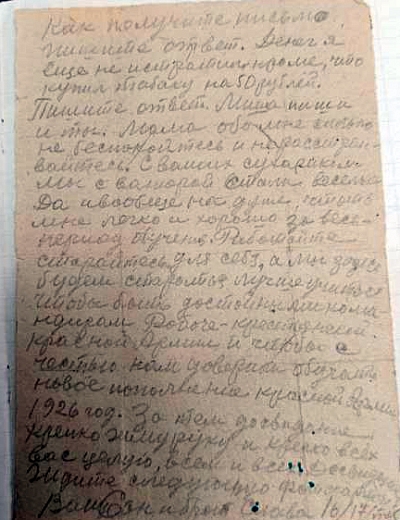 Как получите письмо
пишите ответ. Денег я
еще не истратил кроме, что
купил табаку на 50 рублей.
Пишите ответ. Миша пиши
и ты. Мама обо мне сильно
не беспокойтесь и нерасстраи-
вайтесь. С ваших сухарах
мы с Ваторой стали веселые
Да и вообще на душе,
мне легко и хорошо за весь
период обучен. Работайте
старайтесь для себя, а мы здесь
будем стараться лучше учиться
чтобы быть достойными кома-
ндирам Рабоче-крестьянской
красной Армии и чтобы с
честью нам доверили обучать
новое пополнение красной Армии
1926 год. За тем досвидание
крепко жму руку и крепко всех
вас целую, всем и всем досвидание
Ждите следующую фотографию
Ваш Сын и брат Слава 16/